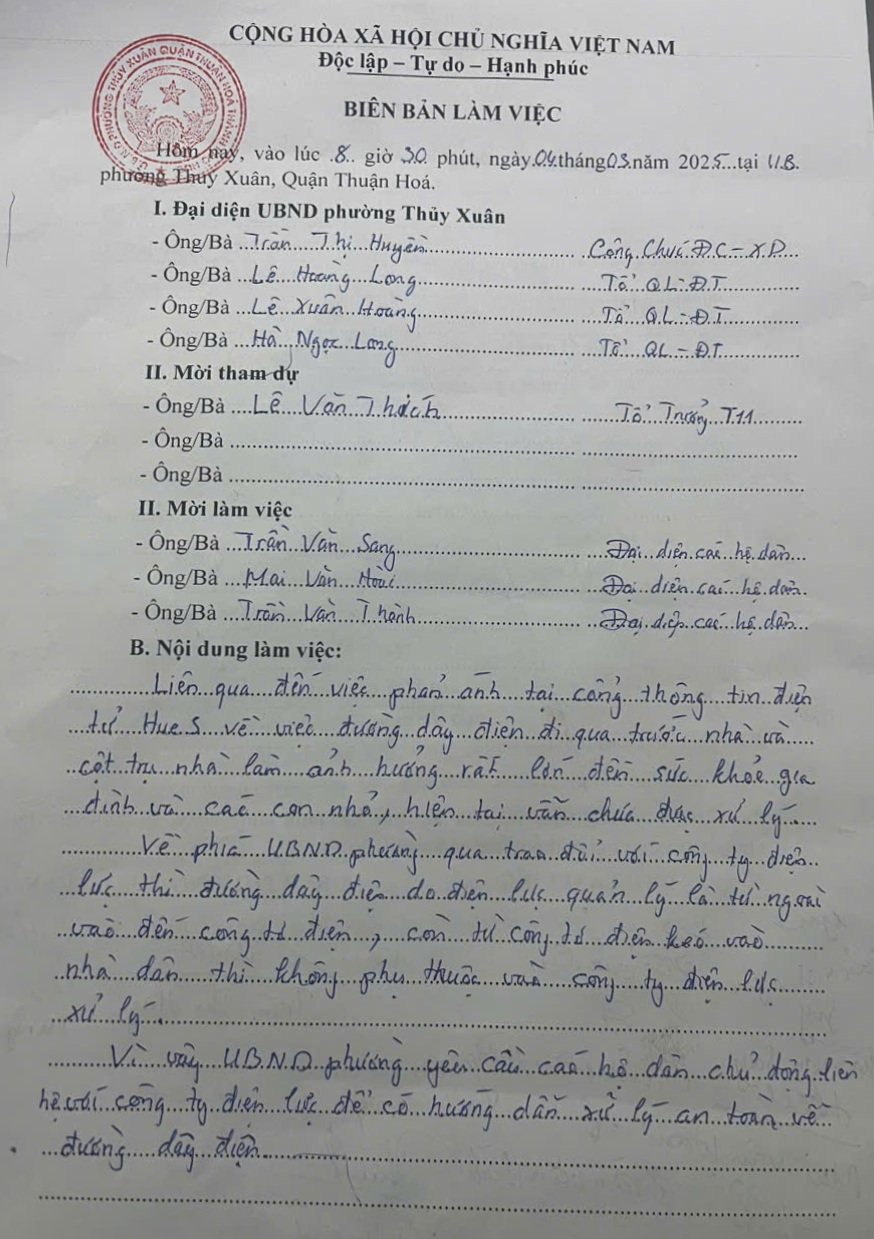 CỘNG HÒA XÃ HỘI CHỦ NGHĨA VIỆT NAM
Độc lập – Tự do – Hạnh phúc
BIÊN BẢN LÀM VIỆC
Hôm nay, vào lúc 8 giờ 30 phút, ngày 04 tháng 03 năm 2025 tại U.B.
phường Thuỷ Xuân, Quận Thuận Hoá.
I. Đại diện UBND phường Thủy Xuân
- Ông/Bà Trần Thị Huyền Công Chức ĐC - XD
- Ông/Bà Lê Hoàng Long Tổ QL - ĐT
- Ông/Bà Lê Xuân Hoàng Tổ QL - ĐT
- Ông/Bà Hà Ngọc Long Tổ QL - ĐT
II. Mời tham dự
- Ông/Bà Lê Văn Thách Tổ Trưởng T11
- Ông/Bà
- Ông/Bà
II. Mời làm việc
- Ông/Bà Trần Văn Sang Đại diện các hộ dân
- Ông/Bà Mai Văn Hoài Đại diện các hộ dân.
- Ông/Bà Trần Văn Thành Đại diện các hộ dân
B. Nội dung làm việc:
Liên qua đến việc phản ánh tại cổng thông tin điện
tử Hue S về việc đường dây điện đi qua trước nhà và
cột trụ nhà làm ảnh hưởng rất lớn đến sức khỏe gia
đình và các con nhỏ, hiện tại vẫn chưa được xử lý.
Về phía UBND phường qua trao đổi với công ty điện
lực thì đường dây điện do điện lực quản lý là từ ngoài
vào đến công tơ điện, còn từ công tơ điện kéo vào
nhà dân thì không phụ thuộc vào công ty điện lực
xử lý.
Vì vậy UBND phường yêu cầu các hộ dân chủ động liên
hệ với công ty điện lực để có hướng dẫn xử lý an toàn về
đường dây điện